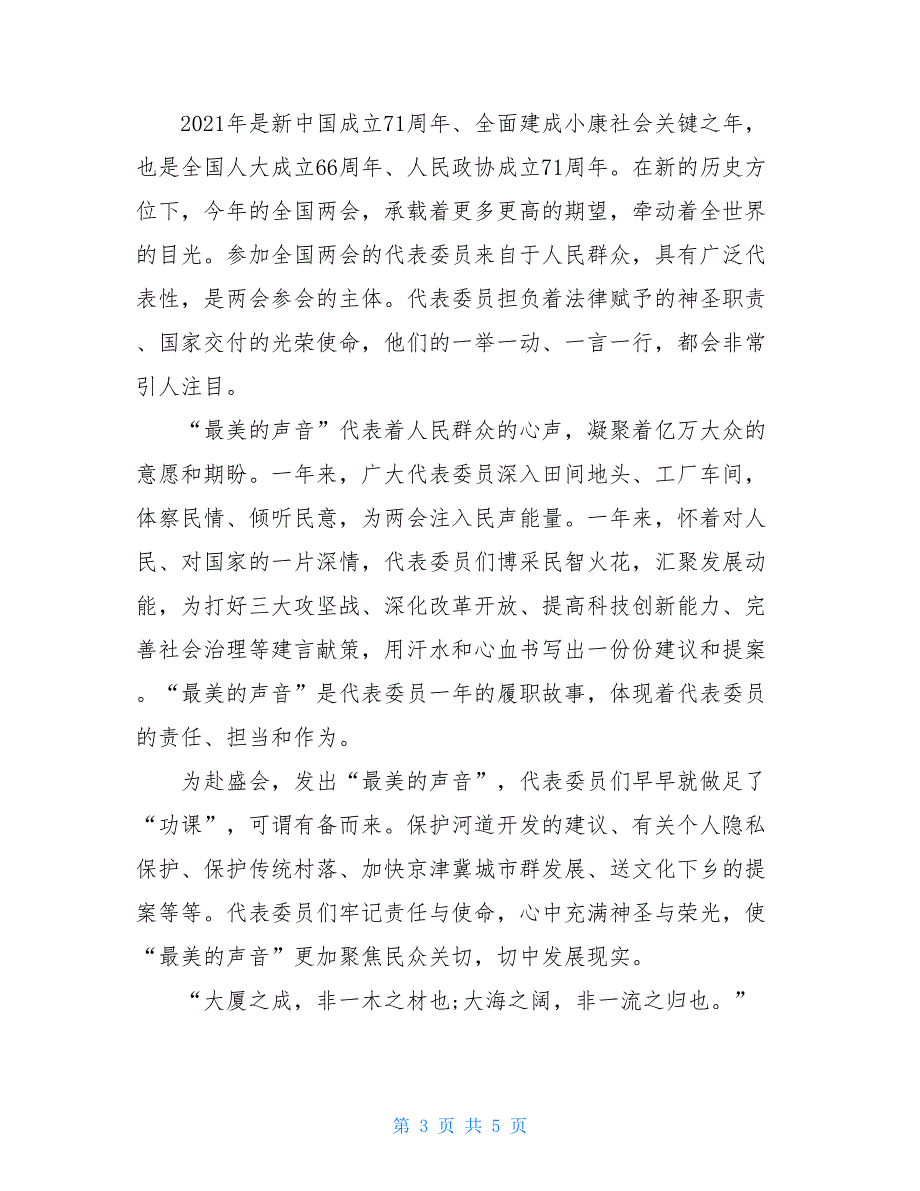 2021年是新中国成立71周年、全面建成小康社会关键之年，
也是全国人大成立66周年、人民政协成立71周年。在新的历史方
位下，今年的全国两会，承载着更多更高的期望，牵动着全世界
的目光。参加全国两会的代表委员来自于人民群众，具有广泛代
表性，是两会参会的主体。代表委员担负着法律赋予的神圣职责
、国家交付的光荣使命，他们的一举一动、一言一行，都会非常
引人注目。
“最美的声音”代表着人民群众的心声，凝聚着亿万大众的
意愿和期盼。一年来，广大代表委员深入田间地头、工厂车间，
体察民情、倾听民意，为两会注入民声能量。一年来，怀着对人
民、对国家的一片深情，代表委员们博采民智火花，汇聚发展动
能，为打好三大攻坚战、深化改革开放、提高科技创新能力、完
善社会治理等建言献策，用汗水和心血书写出一份份建议和提案
。“最美的声音”是代表委员一年的履职故事，体现着代表委员
的责任、担当和作为。
为赴盛会，发出“最美的声音”，代表委员们早早就做足了
“功课”，可谓有备而来。保护河道开发的建议、有关个人隐私
保护、保护传统村落、加快京津冀城市群发展、送文化下乡的提
案等等。代表委员们牢记责任与使命，心中充满神圣与荣光，使
“最美的声音”更加聚焦民众关切，切中发展现实。
“大厦之成，非一木之材也;大海之阔，非一流之归也。”
第 3 页 共 5 页